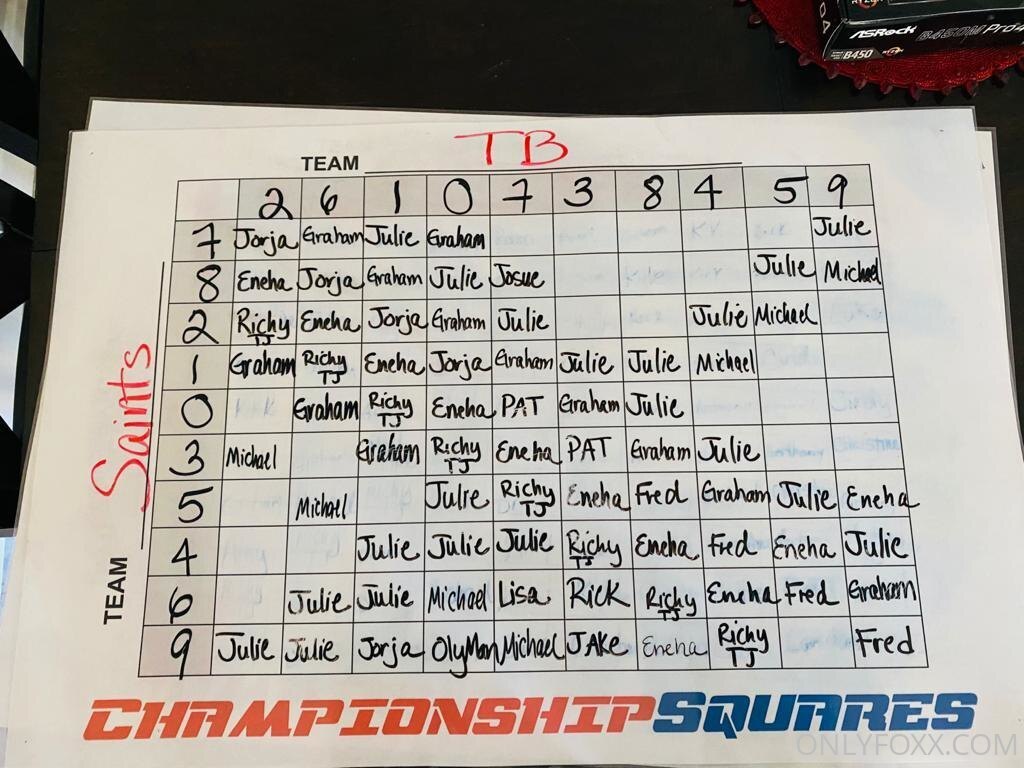 ASRock B450M Pro4
B450
TEAM TB
2 6 1 0 7 3 8 4 5 9
7 Jorja Graham Julie Graham Julie
8 Eneha Jorja Graham Julie Josue Julie Michael
2 Richy TJ Eneha Jorja Graham Julie Julie Michael
1 Graham Richy TJ Eneha Jorja Graham Julie Julie Michael
0 Graham Richy TJ Eneha PAT Graham Julie
3 Michael Graham Richy TJ Eneha PAT Graham Julie
5 Michael Julie Richy TJ Eneha Fred Graham Julie Eneha
4 Julie Julie Julie Richy TJ Eneha Fred Eneha Julie
6 Julie Julie Michael Lisa Rick Richy TJ Eneha Fred Graham
9 Julie Julie Jorja OlyMan Michael JAKe Eneha Richy TJ Fred
TEAM Saints
CHAMPIONSHIP SQUARES
ONLYFOXX.COM